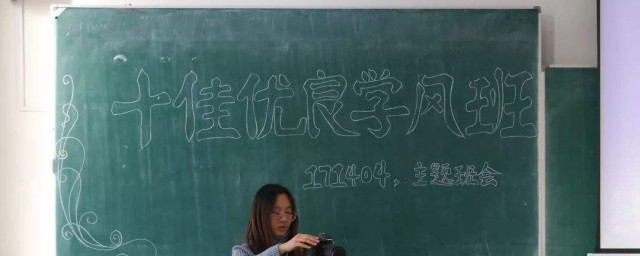 十佳优良学风班
171404，主题班会